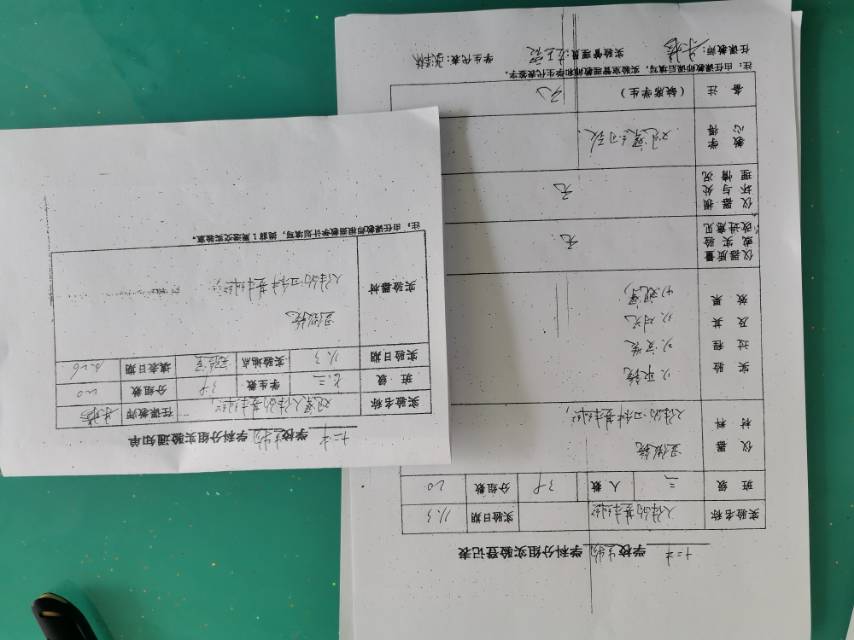 十二中 学校生物学科分组实验通知单
实验名称 观察人体的基本组织 任课教师
班级 七.三 学生数 38 分组数 20
实验日期 11.3 实验地点 实验室 填表日期 10.26
实验器材 显微镜
人体的四种基本组织
注：由任课教师根据教学计划填写，提前1周递交实验室。
十二中 学校生物学科分组实验登记表
实验名称 人体的基本组织 实验日期 11.3
班级 三 人数 38 分组数 20
仪器材料 显微镜
人体的四种基本组织
实验过程及其效果 (1)取镜
(2)安装
(3)对光
(4)观察
仪器质量或实验改进意见 无
仪器损坏与处理情况 无
教学心得
备注（缺席学生） 无
注：由任课教师课后填写，实验室管理教师和学生代表签字。
任课教师： 实验管理员： 学生代表：